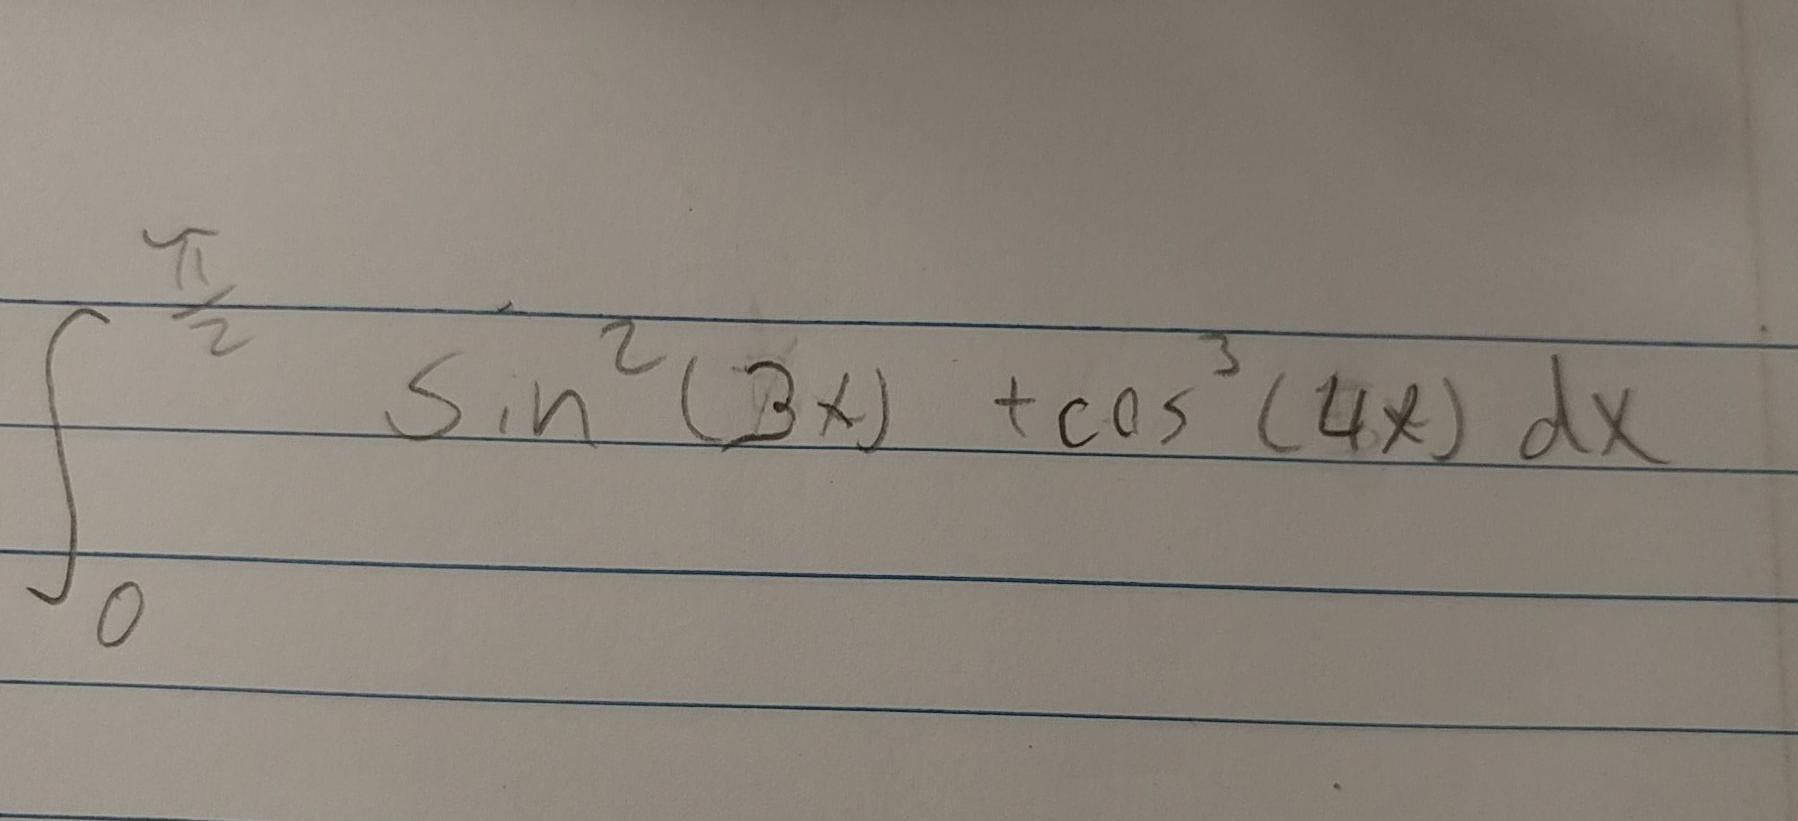 ∫₀^(π/2) sin²(3x) + cos³(4x) dx